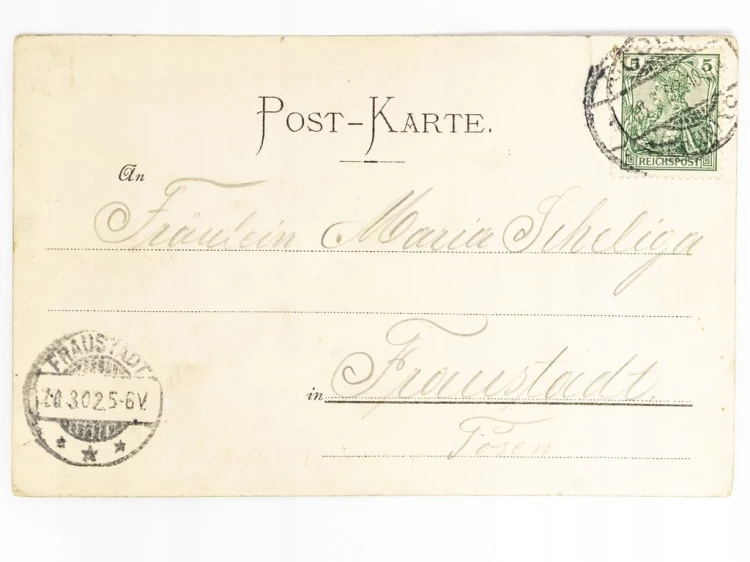 5 5
REICHSPOST
POST-KARTE.
An
Fräulein Maria Scheliga
in Fraustadt.
Posen
FRAUSTADT
20.3.02.5-6V.